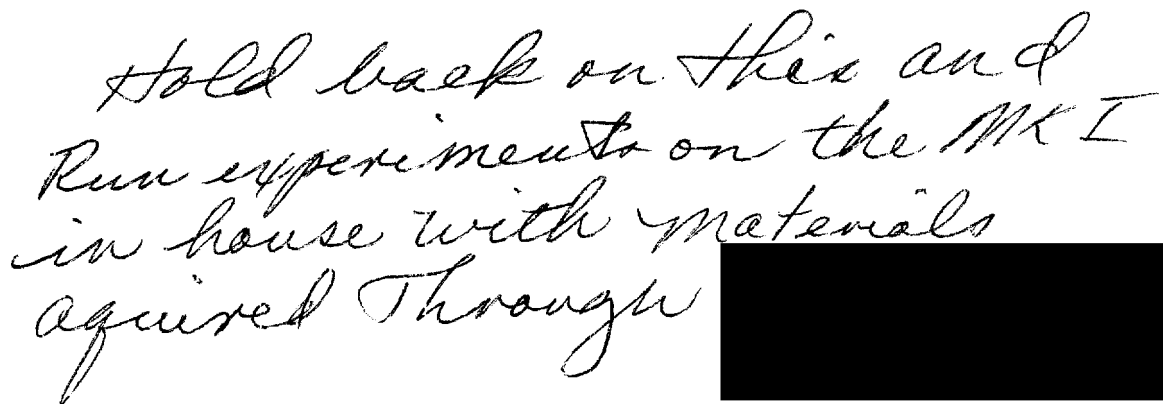 Hold back on this and
Run experiments on the MK I
in house with materials
aquired Through